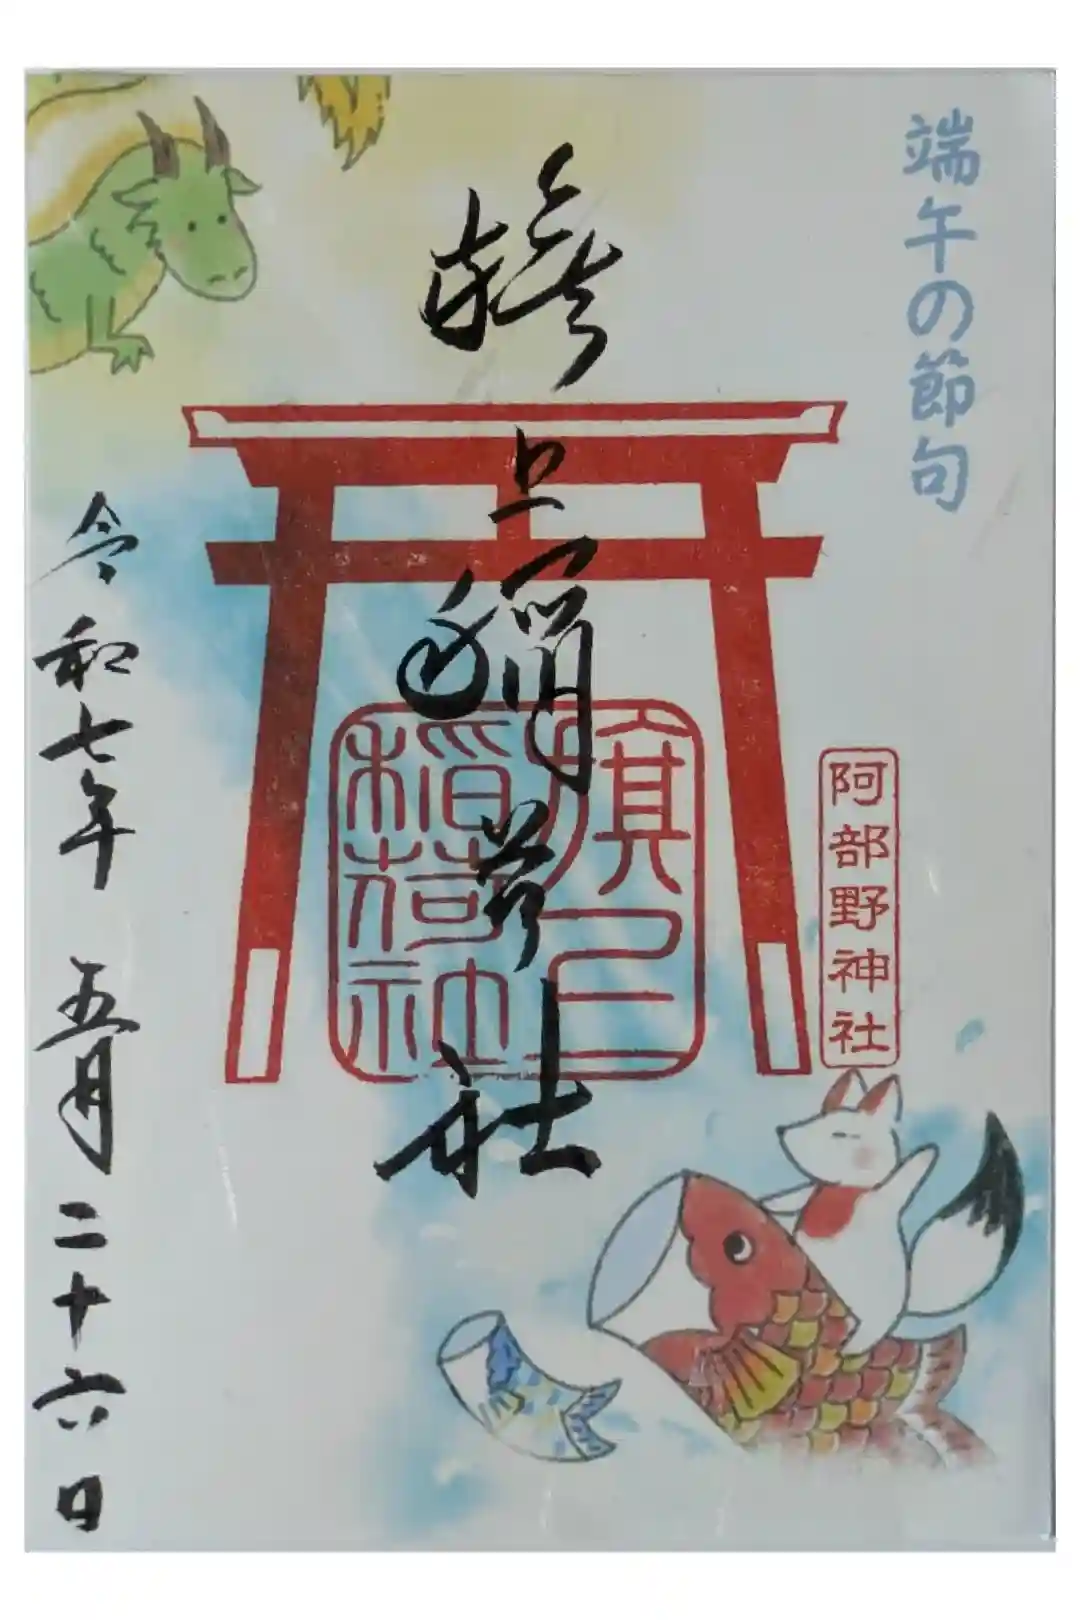 端午の節句
旗上稲荷社
旗上
稲荷社
阿部野神社
令和七年 五月二十六日